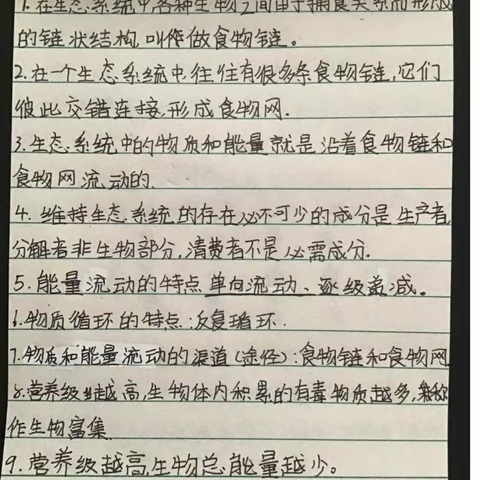 1.在生态系统中各种生物之间由于捕食关系而形成
的链状结构,叫作做食物链。
2.在一个生态系统中往往有很多条食物链,它们
彼此交错连接,形成食物网.
3.生态系统中的物质和能量就是沿着食物链和
食物网流动的.
4.维持生态系统的存在必不可少的成分是生产者,
分解者非生物部分,清费者不是必需成分.
5.能量流动的特点单向流动、逐级递减。
6.物质循环的特点:反复循环.
7.物质和能量流动的渠道(途径):食物链和食物网
8.营养级越高,生物体内积累的有毒物质越多,称
作生物富集.
9.营养级越高,生物总能量越少。